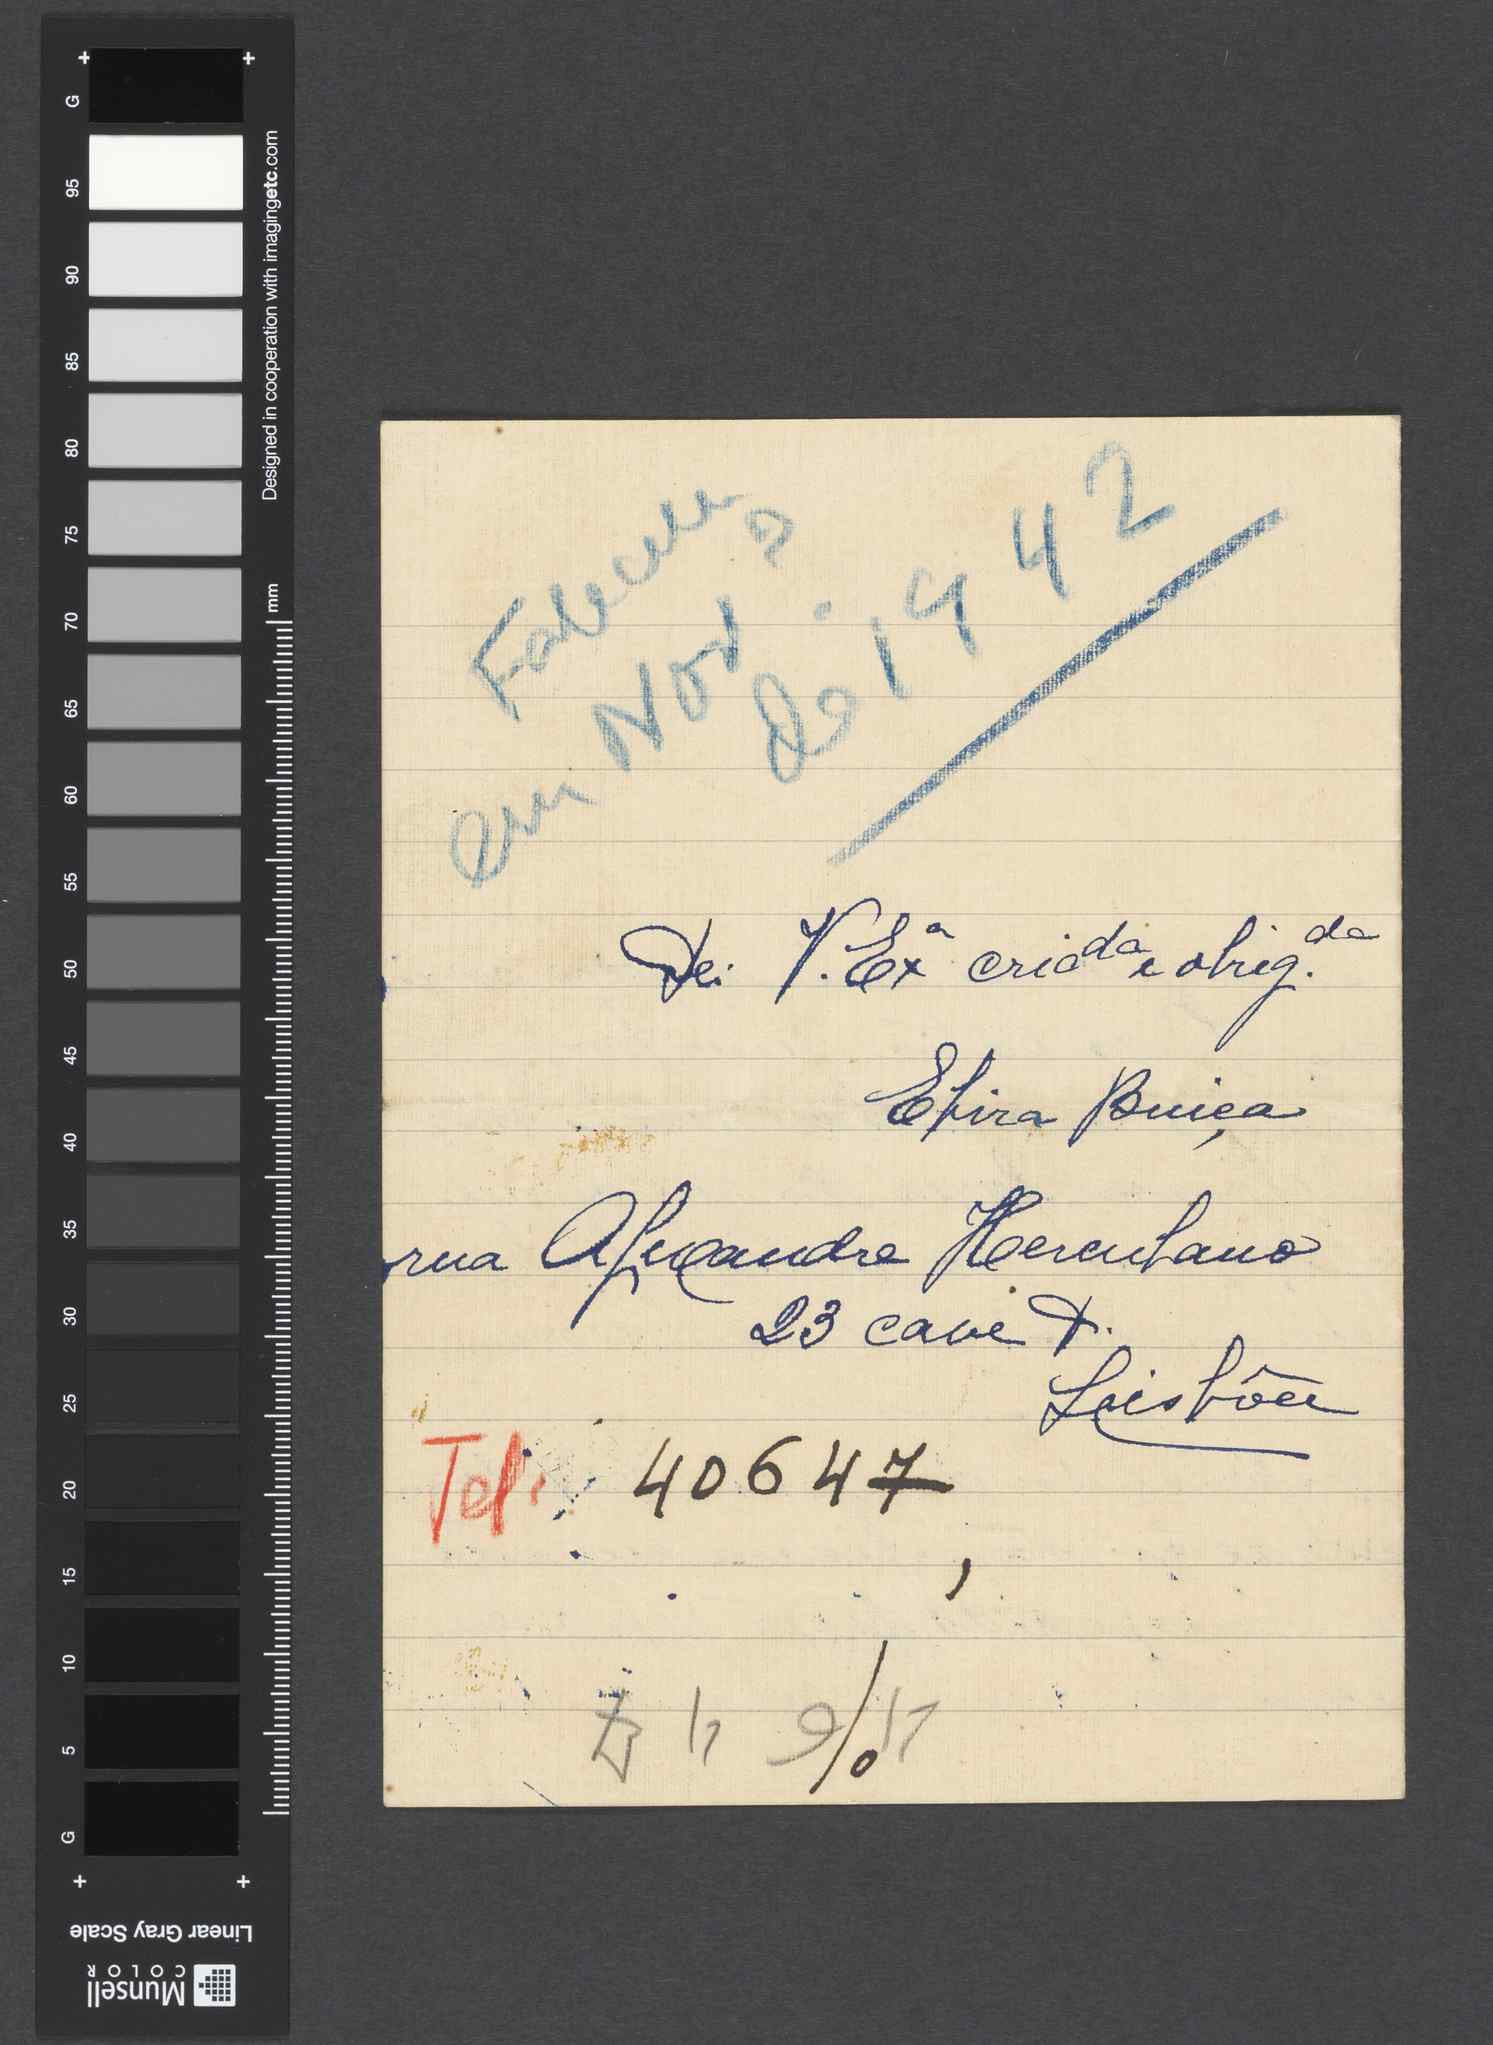 Faleceu
em Nov.º
de 1942
De: V. Exª criada e obrig.da
Elvira Buiça
rua Alexandre Herculano
23 cave D.
Lisbôa
Tel: 40647
Designed in cooperation with imagingetc.com
mm
G
95
90
85
80
75
70
65
60
55
50
45
40
35
30
25
20
15
10
5
G
Linear Gray Scale
Munsell
COLOR